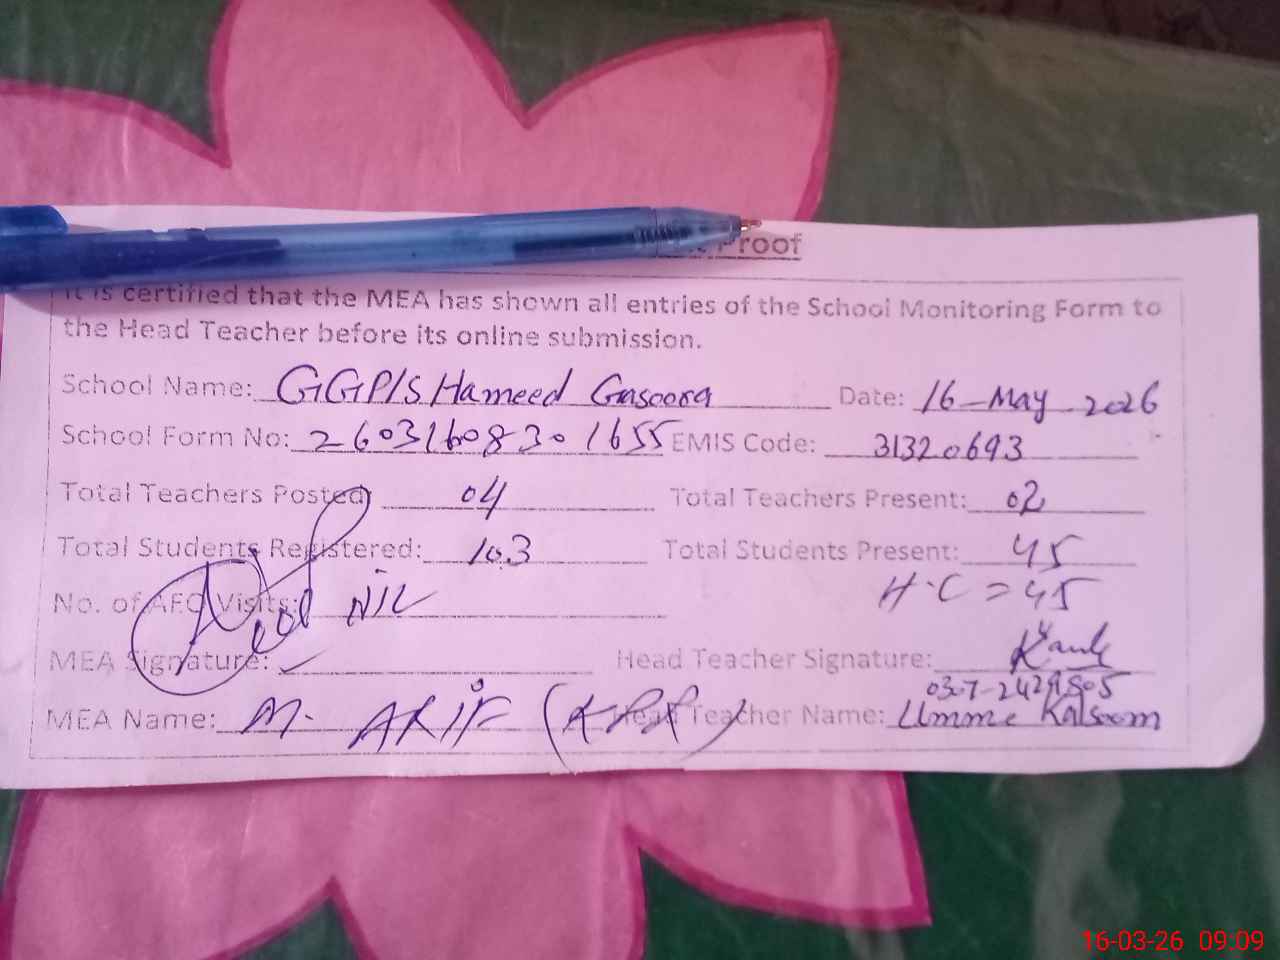 Proof
It is certified that the MEA has shown all entries of the School Monitoring Form to
the Head Teacher before its online submission.
School Name: GGP/S Hameed Gasoora Date: 16-May-2026
School Form No: 26031608301655 EMIS Code: 31320693
Total Teachers Posted: 04 Total Teachers Present: 02
Total Students Registered: 103 Total Students Present: 45
H.C = 45
No. of AEO Visits: NIL
MEA Signature: Head Teacher Signature:
0307-2429505
MEA Name: M. ARIF (KPR) Head Teacher Name: Umme Kalsoom
16-03-26 09:09